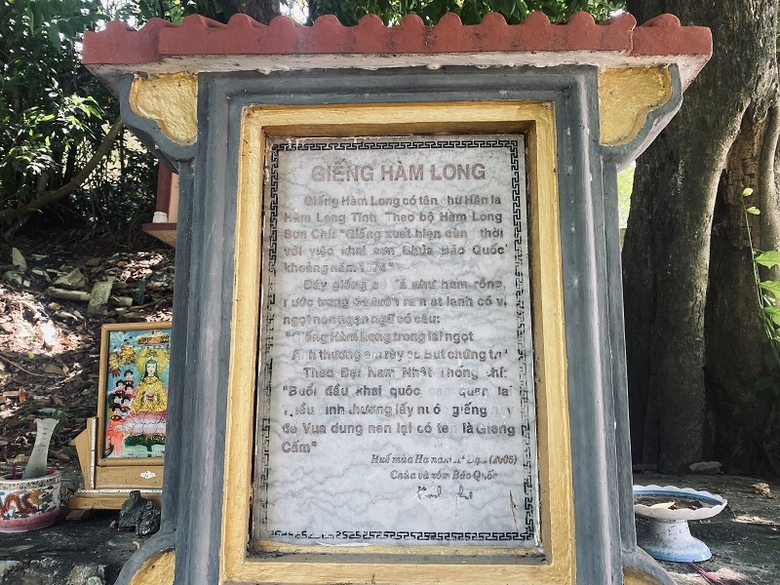 GIẾNG HÀM LONG
Giếng Hàm Long có tên chữ Hán là
Hàm Long Tỉnh Theo bộ Hàm Long
Sơn Chí: "Giếng xuất hiện cùng thời
với việc khai sơn Chùa Báo Quốc
khoảng năm 1674"
Đáy giếng có đá như hàm rồng,
nước trong đá tuôn ra mát lạnh có vị
ngọt non ngạn ngữ có câu:
"Giếng Hàm Long trong lại ngọt
Anh thương em rày có Bụt chứng tri"
Theo Đại Nam Nhất Thống Chí:
"Buổi đầu khai quốc các quan lại
triều đình thường lấy nước giếng này
để Vua dùng nên lại có tên là Giếng
Cấm"
Huế mùa Hạ năm Ất Dậu (2005)
Chùa và xóm Báo Quốc